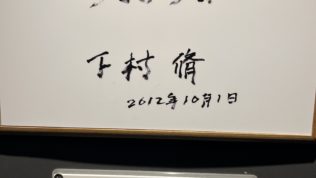 下村 脩
2012年10月1日